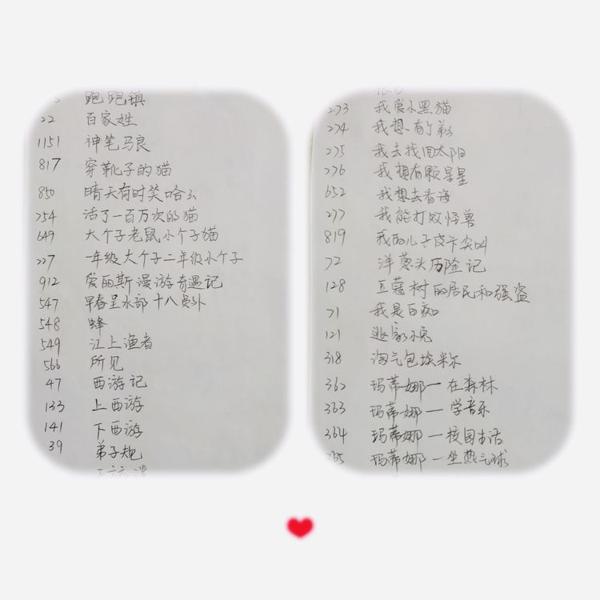 跑跑镇
22 百家姓
1151 神笔马良
817 穿靴子的猫
850 晴天有时笑哈云
754 活了一百万次的猫
649 大个子老鼠小个子猫
227 一年级大个子二年级小个子
912 爱丽斯漫游奇遇记
547 早春呈水部十八员外
548 蜂
549 江上渔者
566 所见
47 西游记
133 上西游
141 下西游
39 弟子规
273 我爱小黑猫
274 我想有个弟弟
275 我去找回太阳
276 我想有颗星星
652 我想去看海
277 我能打败怪兽
819 我的儿子皮卡 尖叫
72 洋葱头历险记
128 豆蔻村的居民和强盗
71 我是白痴
121 逃家小兔
318 淘气包埃米尔
362 玛蒂娜一在森林
363 玛蒂娜一学音乐
364 玛蒂娜一校园生活
玛蒂娜一坐热气球